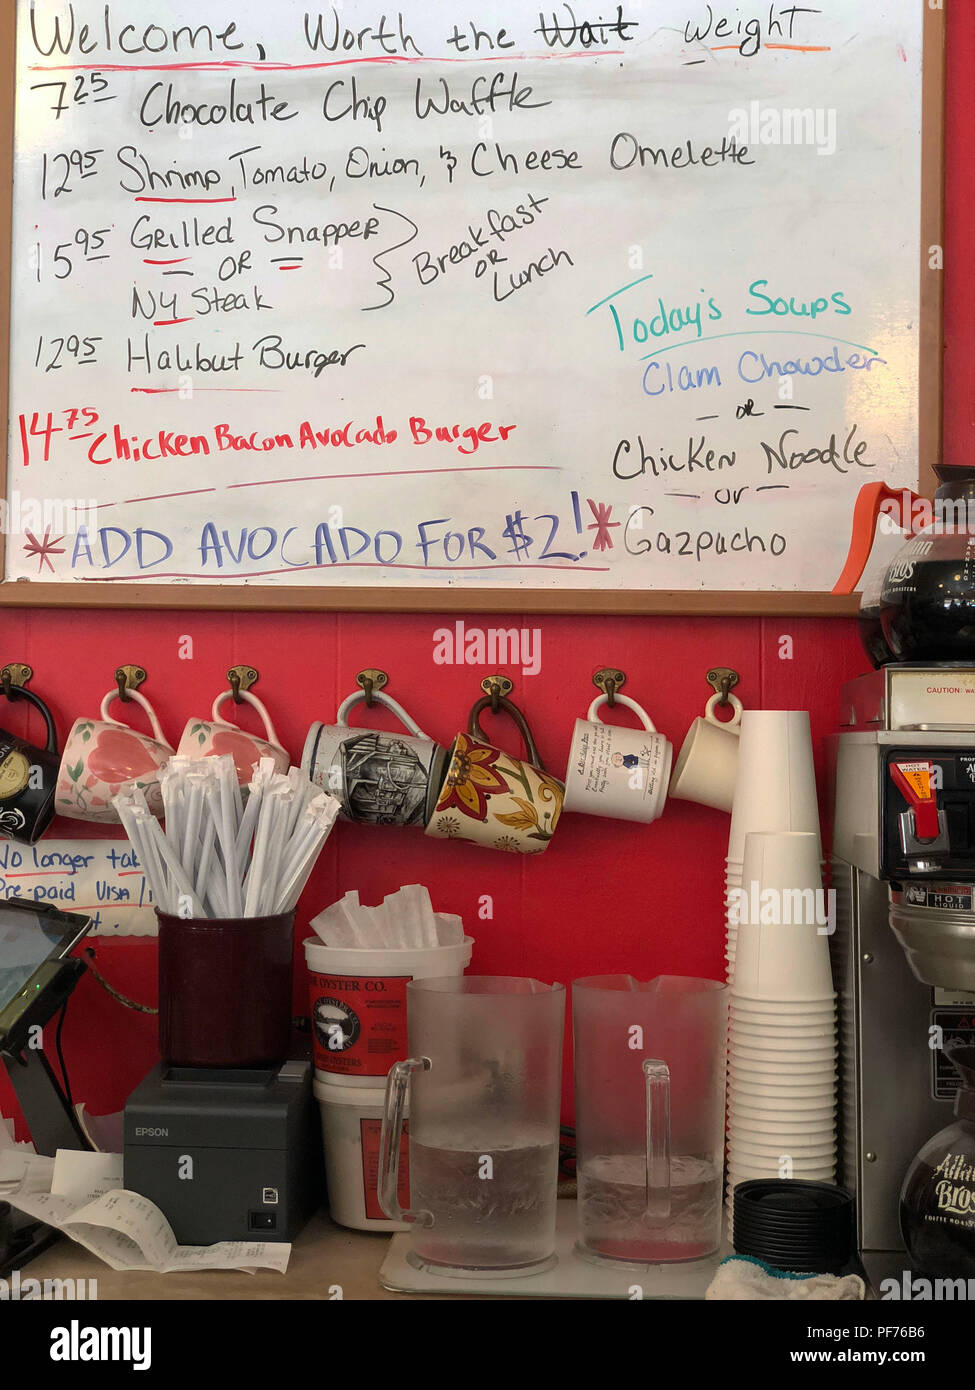 Welcome, Worth the Wait Weight
7 25 Chocolate Chip Waffle
12 95 Shrimp, Tomato, Onion, & Cheese Omelette
15 95 Grilled Snapper
OR
NY Steak
Breakfast
OR
Lunch
12 95 Halibut Burger
14 75 Chicken Bacon Avocado Burger
*ADD AVOCADO FOR $2!*
Today's Soups
Clam Chowder
- OR -
Chicken Noodle
- or -
Gazpacho
No longer
Pre-paid VISA/
CAUTION:
HOT WATER
HOT
LIQUID
OYSTER CO.
OYSTERS
EPSON
Bros
COFFEE
Bros
COFFEE
alamy
Image ID: PF76B6
www.alamy.com